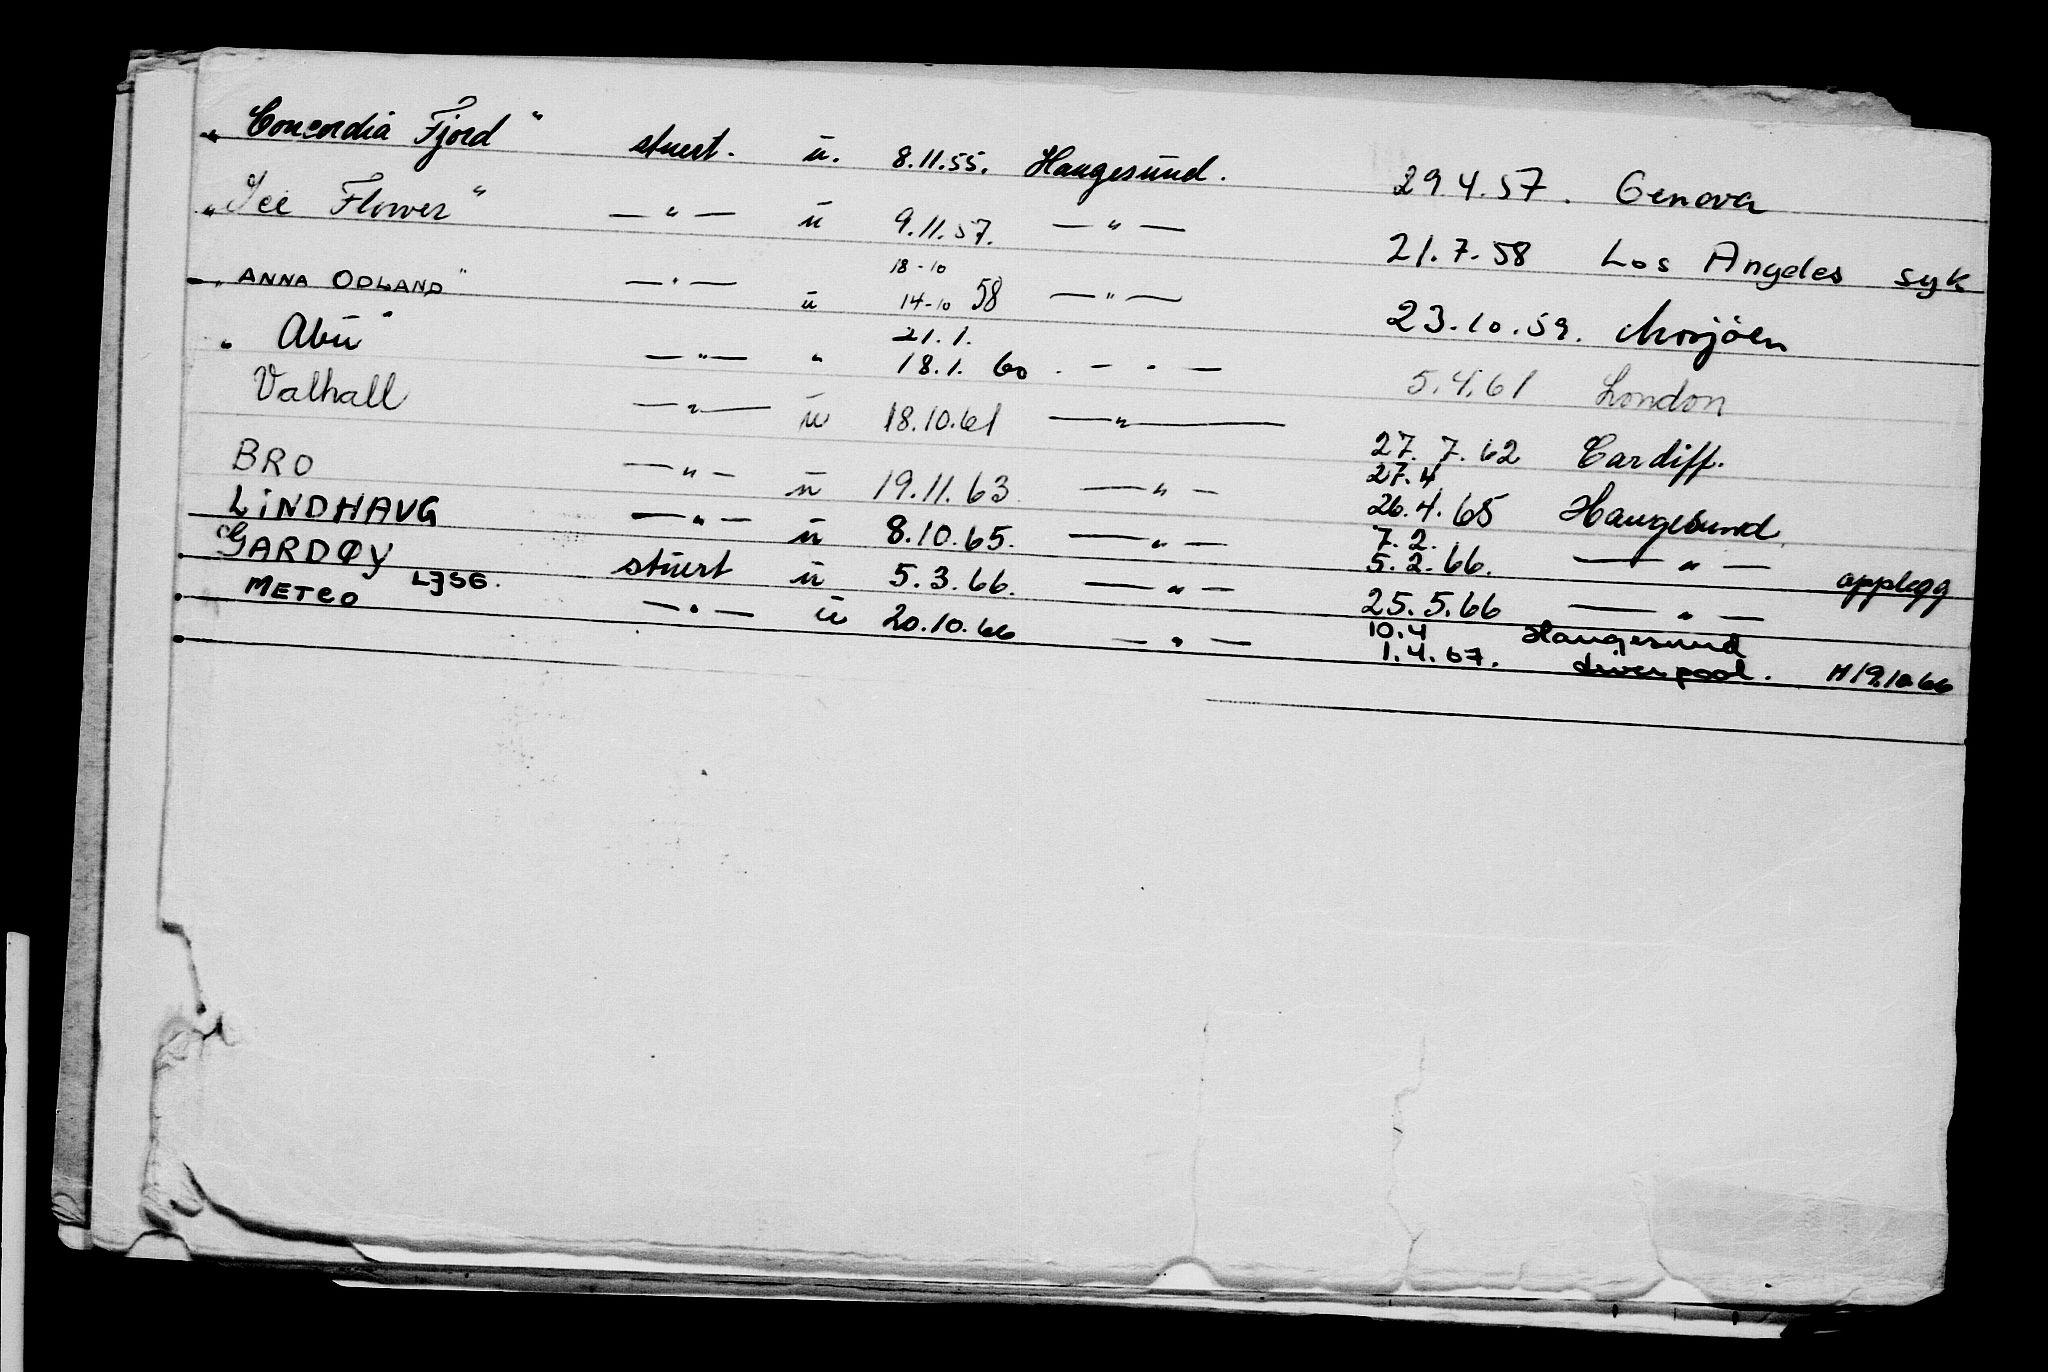 "Concordia Fjord" stuert. u. 8.11.55. Haugesund. 29.4.57. Genova
"Ice Flower" — " — u 9.11.57. — " — 21.7.58 Los Angeles syk
18-10
"ANNA ODLAND" — " — u 14-10 58 — " — 23.10.59. Mosjöen
21.1.
"Abu" — " — " 18.1. 60 . — " — 5.4.61 London
Valhall — " — u 18.10.61 — " — 27.7.62 Cardiff.
27.4
BRO — " — u 19.11.63 — " — 26.4.65 Haugesund.
7.2.
LINDHAUG — " — u 8.10.65. — " — 5.2.66. — " — opplegg
GARDØY LJSG. stuert u 5.3.66. — " — 25.5.66 — " —
10.4 Haugesund
METCO — " — u 20.10.66 — " — 1.4.67. Liverpool. H 19.10.66